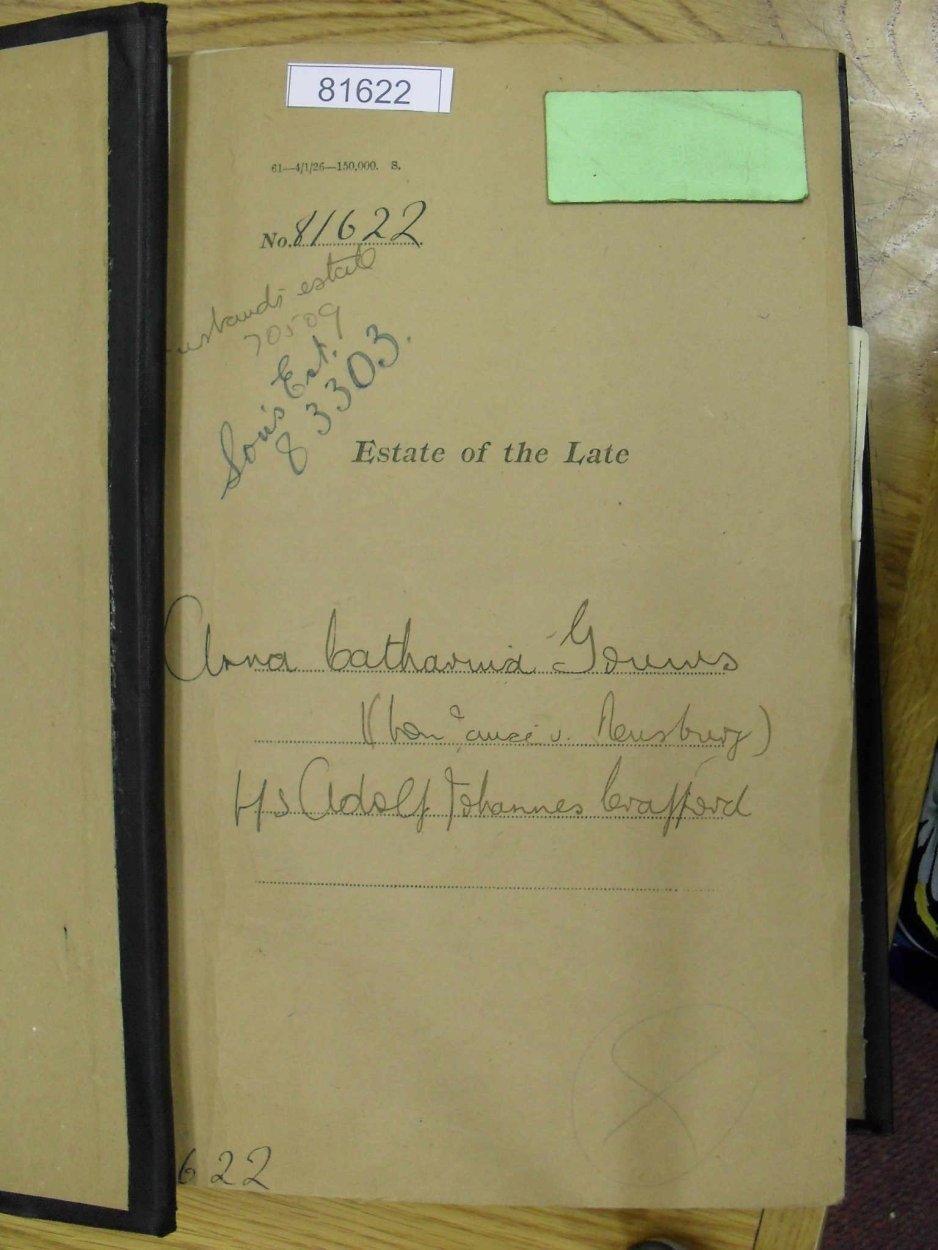 81622
61—4/1/26—150,000. S.
No. 81622
usband's estate
70509
Son's Est.
83303.
Estate of the Late
Anna Catharina Gouws
v. Rensburg)
Adolf Johannes Crafford
8
622